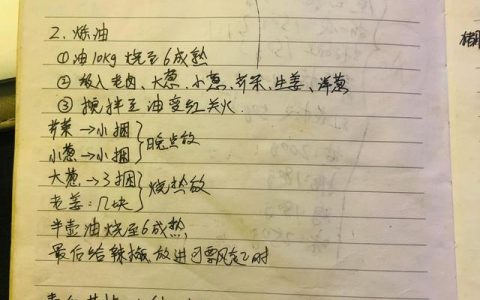 2. 炼油
①油10kg 烧至6成热
②放入老卤、大葱、小葱、芹菜、生姜、洋葱
③搅拌至油变红关火
芹菜→小捆
小葱→小捆 晚点放
大葱→3捆
老姜:几块 烧热放
半壶油烧至6成热
最后给辣椒放进